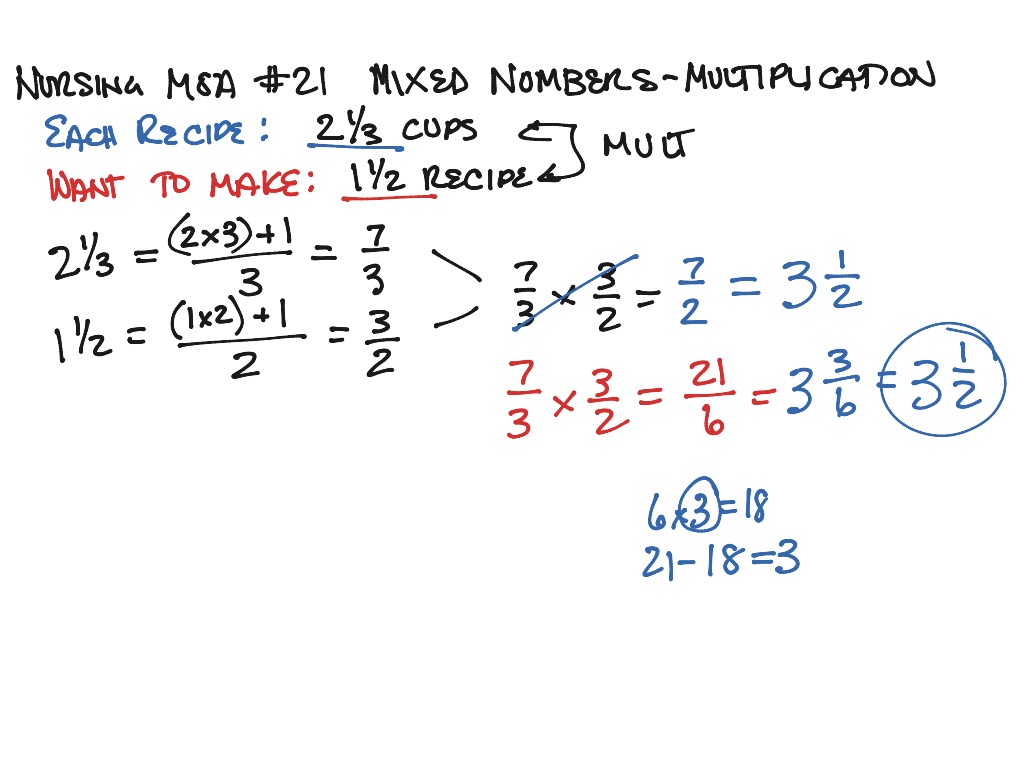 NURSING M&A #21 MIXED NUMBERS-MULTIPLICATION
EACH RECIPE: 2 1/3 CUPS
MULT
WANT TO MAKE: 1 1/2 RECIPE
2 1/3 = (2×3)+1/3 = 7/3
1 1/2 = (1×2)+1/2 = 3/2
7/3 × 3/2 = 7/2 = 3 1/2
7/3 × 3/2 = 21/6 = 3 3/6 = 3 1/2
6×3=18
21-18=3